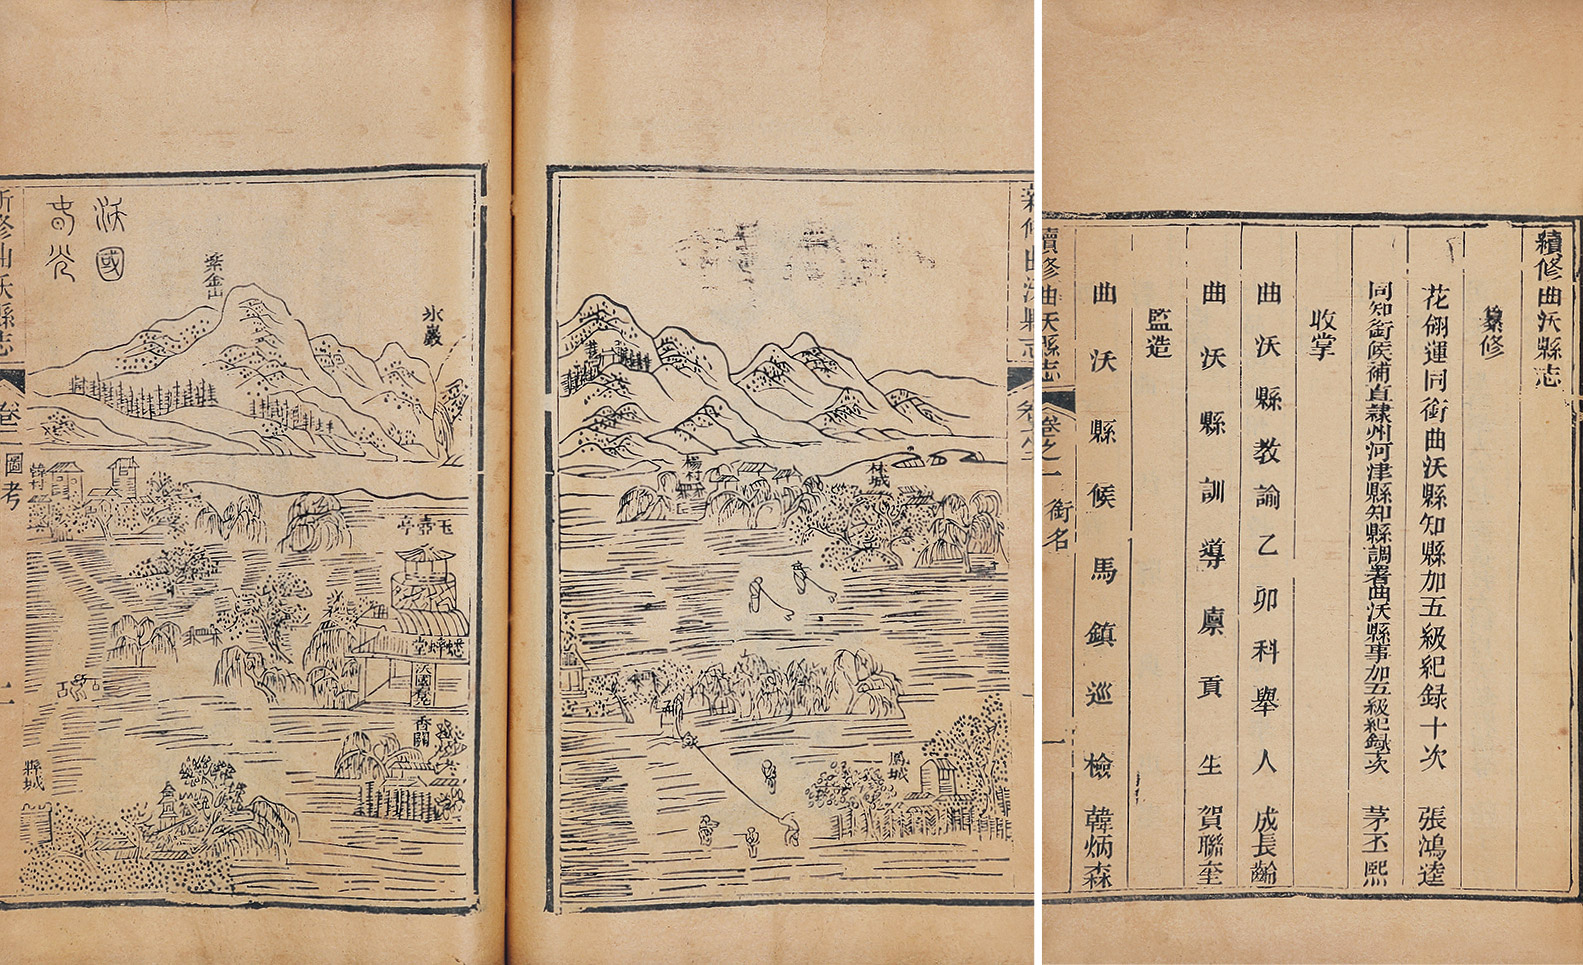 續修曲沃縣志
纂修
花翎運同銜曲沃縣知縣加五級紀録十次 張鴻逵
同知銜候補直隷州河津縣知縣調署曲沃縣事加五級紀録次 茅丕熙
收掌
曲沃縣教諭乙卯科舉人 成長齡
曲沃縣訓導廪貢生 賀聯奎
監造
曲沃縣候馬鎮巡檢 韓炳森
續修曲沃縣志
卷之一
銜名
一
新修曲沃縣志
林城
楊村
鳳城
沃國
春光
紫金山
氷巖
韓村
玉壺亭
蟋蟀堂
沃國
香閣
縣城
新修曲沃縣志
卷
圖考